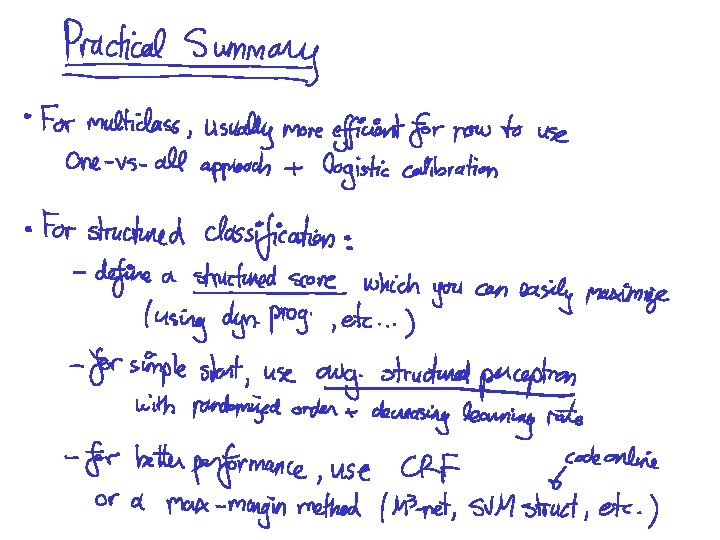 Practical Summary
• For multiclass, usually more efficient for now to use
One-vs-all approach + logistic calibration
• For structured classification:
- define a structured score which you can easily maximize
(using dyn. prog., etc...)
- for simple start, use avg. structured perceptron
with randomized order + decreasing learning rate
- for better performance, use CRF
code online
or a max-margin method (M³-net, SVM struct, etc.)